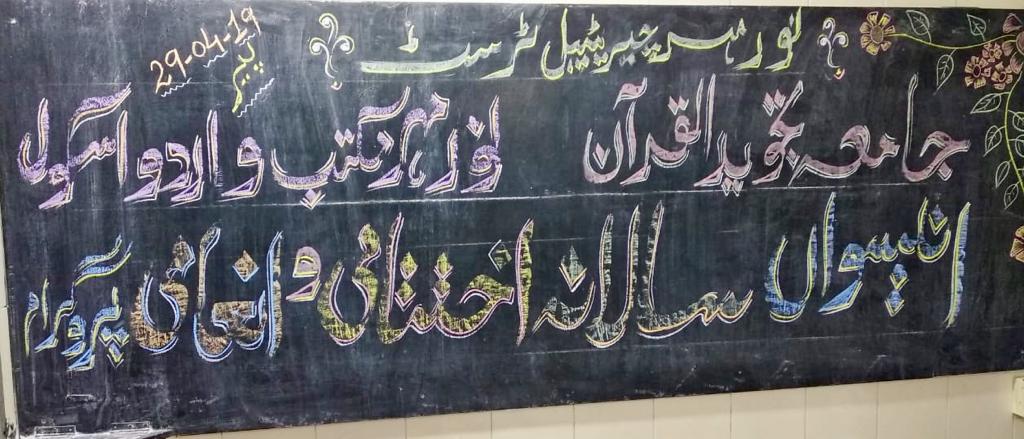 نور مہر چیریٹیبل ٹرسٹ
29-04-19
پیر
جامعہ تجوید القرآن نور مہر مکتب و اردو اسکول
انیسواں سالانہ اختتامی و انعامی پروگرام